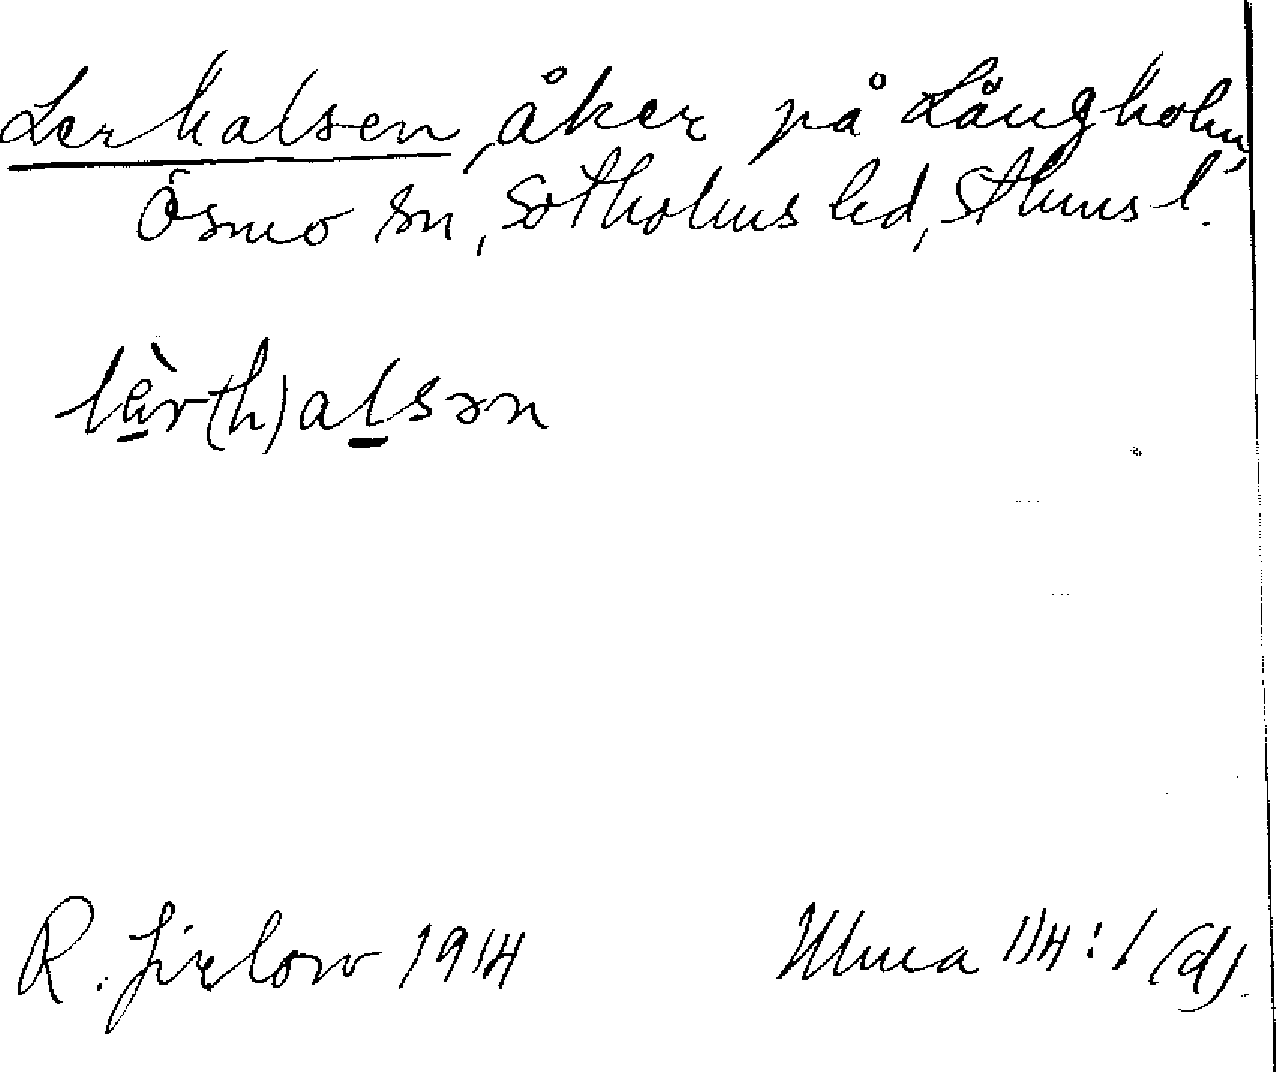 Lerhalsen, åker på Långholm,
Ösmo sn, Sotholms hd, Sthms l.
lèr(h)alsən
R. Jirlow 1914
Ulma 114:1 (d).